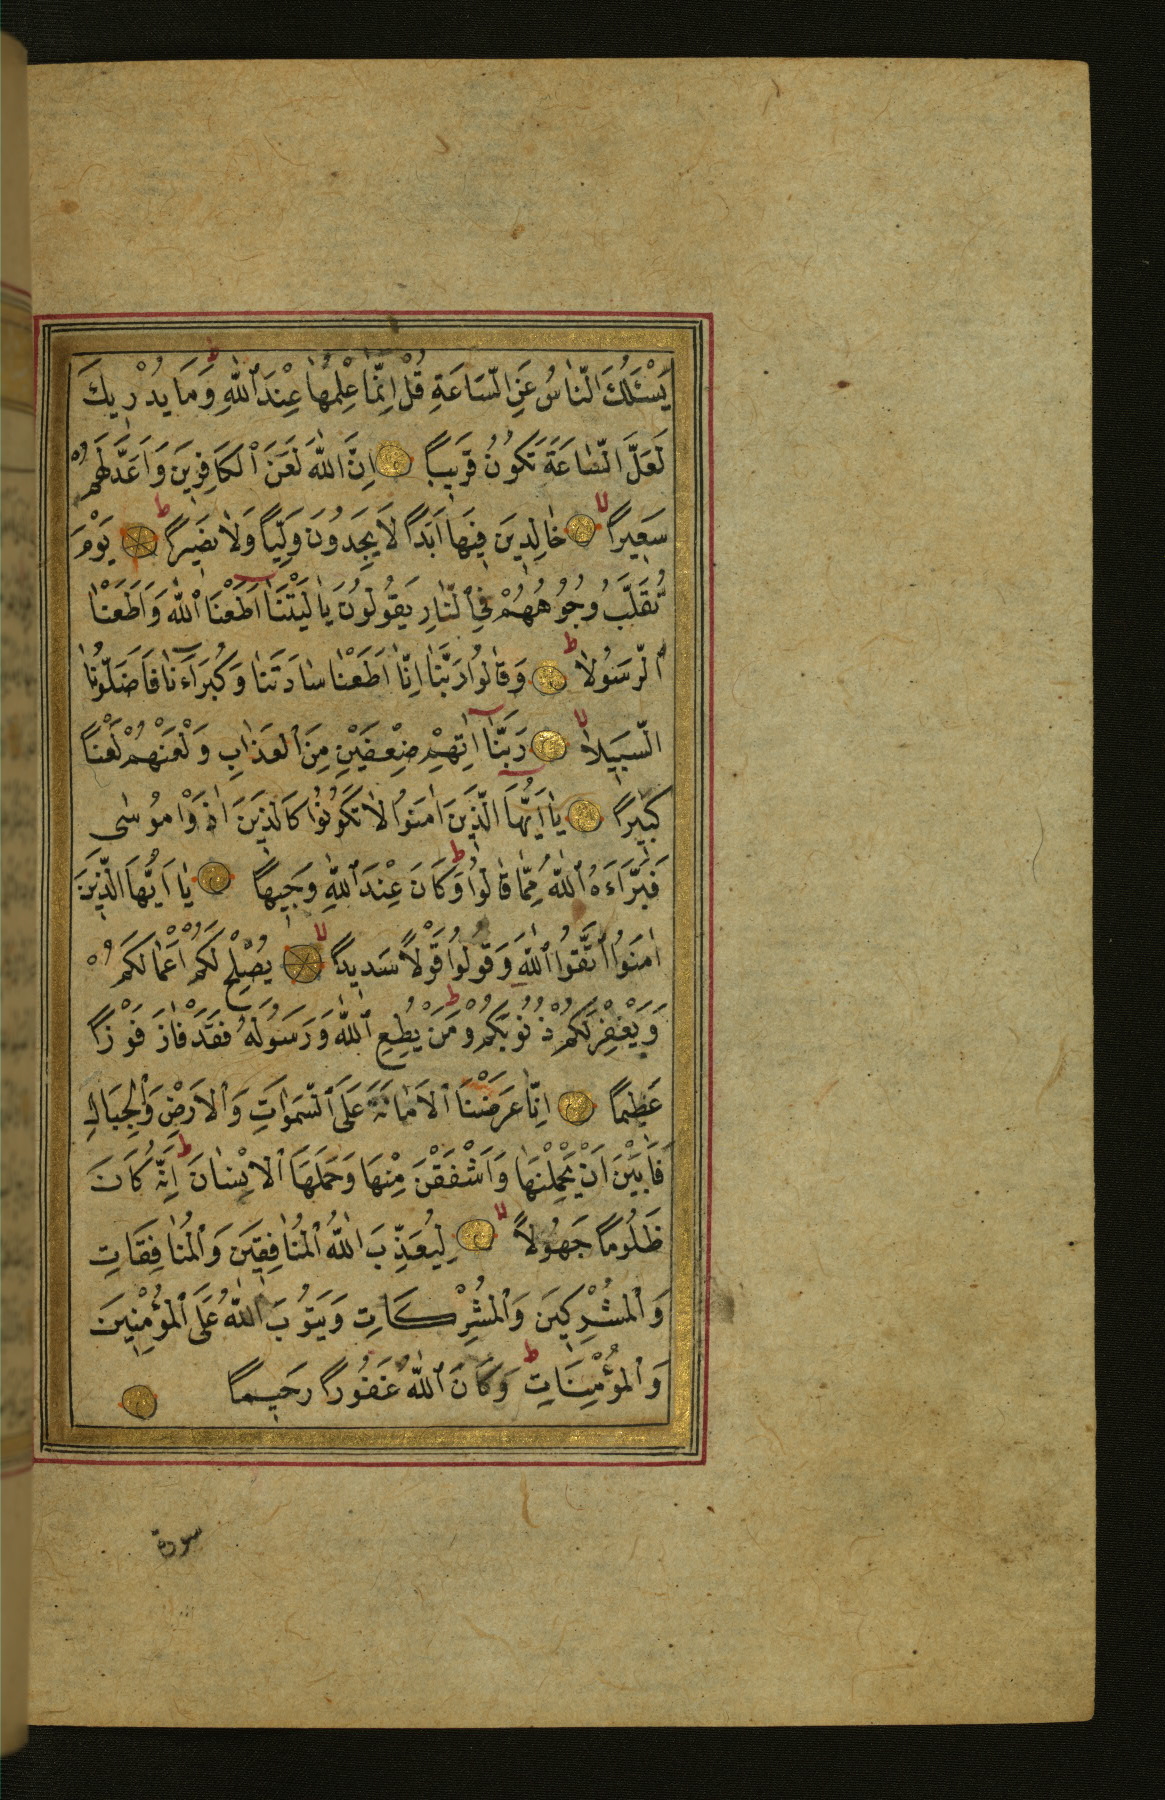 يَسْـَٔلُكَ النَّاسُ عَنِ السَّاعَةِ قُلْ اِنَّمَا عِلْمُهَا عِنْدَ ٱللّٰهِ وَمَا يُدْرِيكَ
لَعَلَّ السَّاعَةَ تَكُونُ قَرِيبًا اِنَّ اللّٰهَ لَعَنَ ٱلْكَافِرِينَ وَاَعَدَّ لَهُمْ
سَعِيرًا خَالِدِينَ فِيهَا اَبَدًا لَا يَجِدُونَ وَلِيًّا وَلَا نَصِيرًا يَوْمَ
تُقَلَّبُ وُجُوهُهُمْ فِي ٱلنَّارِ يَقُولُونَ يَا لَيْتَنَا اَطَعْنَا ٱللّٰهَ وَاَطَعْنَا
ٱلرَّسُولَا وَقَالُوا رَبَّنَا اِنَّا اَطَعْنَا سَادَتَنَا وَكُبَرَاءَنَا فَاَضَلُّونَا
السَّبِيلَا رَبَّنَا اٰتِهِمْ ضِعْفَيْنِ مِنَ ٱلْعَذَابِ وَلْعَنْهُمْ لَعْنًا
كَبِيرًا يَا اَيُّهَا الَّذِينَ اٰمَنُوا لَا تَكُونُوا كَالَّذِينَ اٰذَوْا مُوسٰى
فَبَرَّاَهُ ٱللّٰهُ مِمَّا قَالُوا وَكَانَ عِنْدَ ٱللّٰهِ وَجِيهًا يَا اَيُّهَا الَّذِينَ
اٰمَنُوا ٱتَّقُوا ٱللّٰهَ وَقُولُوا قَوْلًا سَدِيدًا يُصْلِحْ لَكُمْ اَعْمَالَكُمْ
وَيَغْفِرْ لَكُمْ ذُنُوبَكُمْ وَمَنْ يُطِعِ ٱللّٰهَ وَرَسُولَهُ فَقَدْ فَازَ فَوْزًا
عَظِيمًا اِنَّا عَرَضْنَا ٱلْاَمَانَةَ عَلَى ٱلسَّمٰوَاتِ وَٱلْاَرْضِ وَٱلْجِبَالِ
فَاَبَيْنَ اَنْ يَحْمِلْنَهَا وَاَشْفَقْنَ مِنْهَا وَحَمَلَهَا ٱلْاِنْسَانَ اِنَّهُ كَانَ
ظَلُومًا جَهُولًا لِيُعَذِّبَ اللّٰهُ ٱلْمُنَافِقِينَ وَٱلْمُنَافِقَاتِ
وَٱلْمُشْرِكِينَ وَٱلْمُشْرِكَاتِ وَيَتُوبَ ٱللّٰهُ عَلَى ٱلْمُؤْمِنِينَ
وَٱلْمُؤْمِنَاتِ وَكَانَ ٱللّٰهُ غَفُورًا رَحِيمًا
سورة